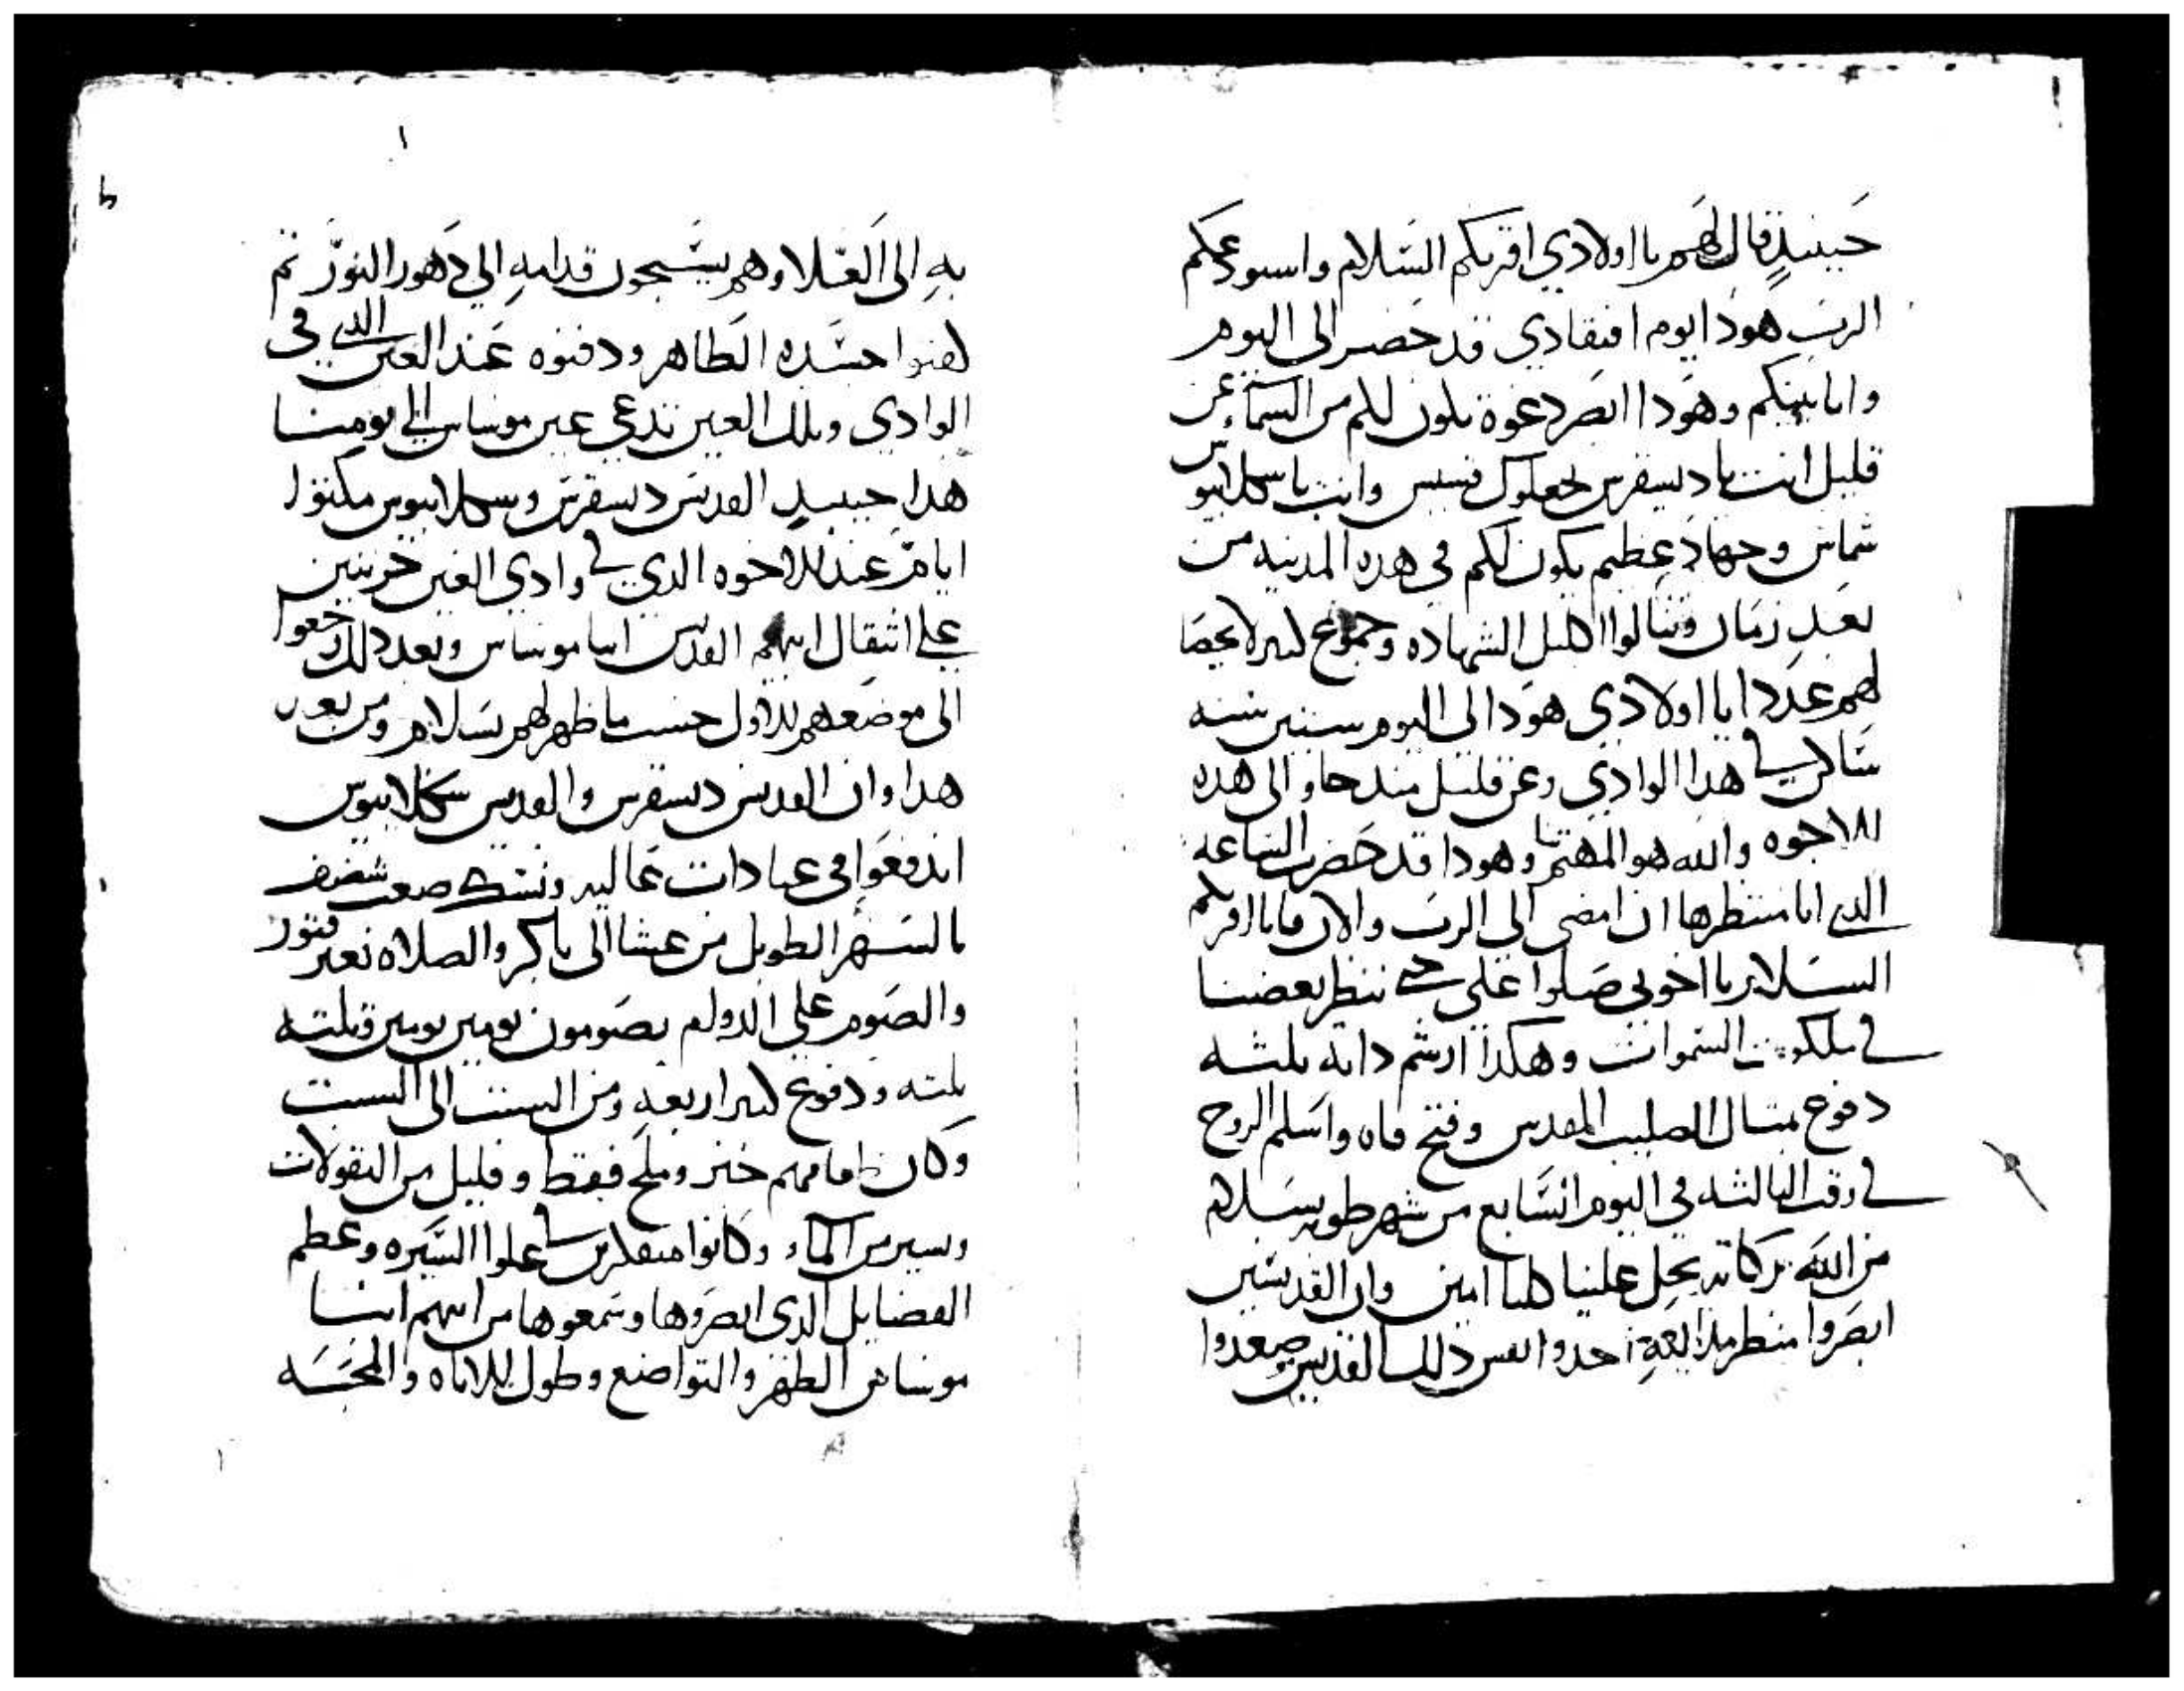 حينيذٍ قال لهم يا اولادي اقريكم السلام واسودعكم
الرب هوذا يوم افتقادي قد حضر الى اليوم
وانا بينكم وهوذا انصر دعوة تكون لكم من السماء عن
قليل انت يا ديسقرس يجعلوك قسيس وانت يا سكلابيوس
شماس وجهاد عظيم يكون لكم في هذه المدينه من
بعد زمان وتنالوا اكليل الشهاده وجموع كثير لا يحصا
لهم عدد ايا اولادي هوذا الى اليوم ستين سنه
ساكن في هذا الوادي وعن قليل منذ جاو الى هذه
الاخوه والله هو المهتم بنا وهوذا قد حضرت الساعه
الذي انا منتظرها ان امضي الى الرب والان فانا اقريكم
السلام يا اخوتي صلوا على حتى ننظر بعضنا
في ملكوت السموات وهكذا ارشم ذاته ثلثه
دفوع بمثال الصليب المقدس وفتح فاه واسلم الروح
في وقت الثالثه في اليوم السابع من شهر طوبه بسلام
من الله بركاته تحل علينا كلنا امين وان القديسين
ابصروا منظر ملايكة احدوا نفس ذلك القديس وصعدوا
به الى العلا وهم يسبحون قدامه الى دهور النور ثم
كفنوا جسده الطاهر ودفنوه عند العين الذي في
الوادي وتلك العين تدعي عين موساس الى يومنا
هذا حينيذٍ القديس ديسقرس وسكلابيوس مكثوا
ايام عند الاخوه الذي في وادي العين حزينين
على انتقال ابيهم القديس انبا موساس وبعد ذلك رجعوا
الى موضعهم الاول حسب ما ظهر لهم بسلام ومن بعد
هذا وان القديس ديسقرس والقديس سكلابيوس
اندفعوا في عبادات عاليه ونسك صعب شضف
بالسهر الطويل من عشا الى باكر والصلاه بغير فتور
والصوم على الدوام يصومون يومين يومين وثلثه
ثلثه ودفوع كثير اربعه ومن السبت الى السبت
وكان طعامهم خبز وملح فقط وقليل من البقولات
ويسير من الماء وكانوا متفكرين في علوا السيره وعظم
الفضايل الذي ابصروها وسمعوها من ابيهم انبا
موساس الطهر والتواضع وطول الاناه والمحبه